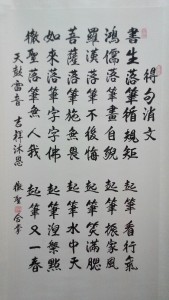 得句消文
書生落筆循規矩　起筆看行氣
鴻儒落筆畫自規　起筆振家風
羅漢落筆不後悔　起筆笑滿腮
菩薩落筆施無畏　起筆水中天
如來落筆字字佛　起筆涅槃點
橄聖落筆無人我　起筆又一春
天鼓雷音　吉祥沐恩
橄聖　合掌